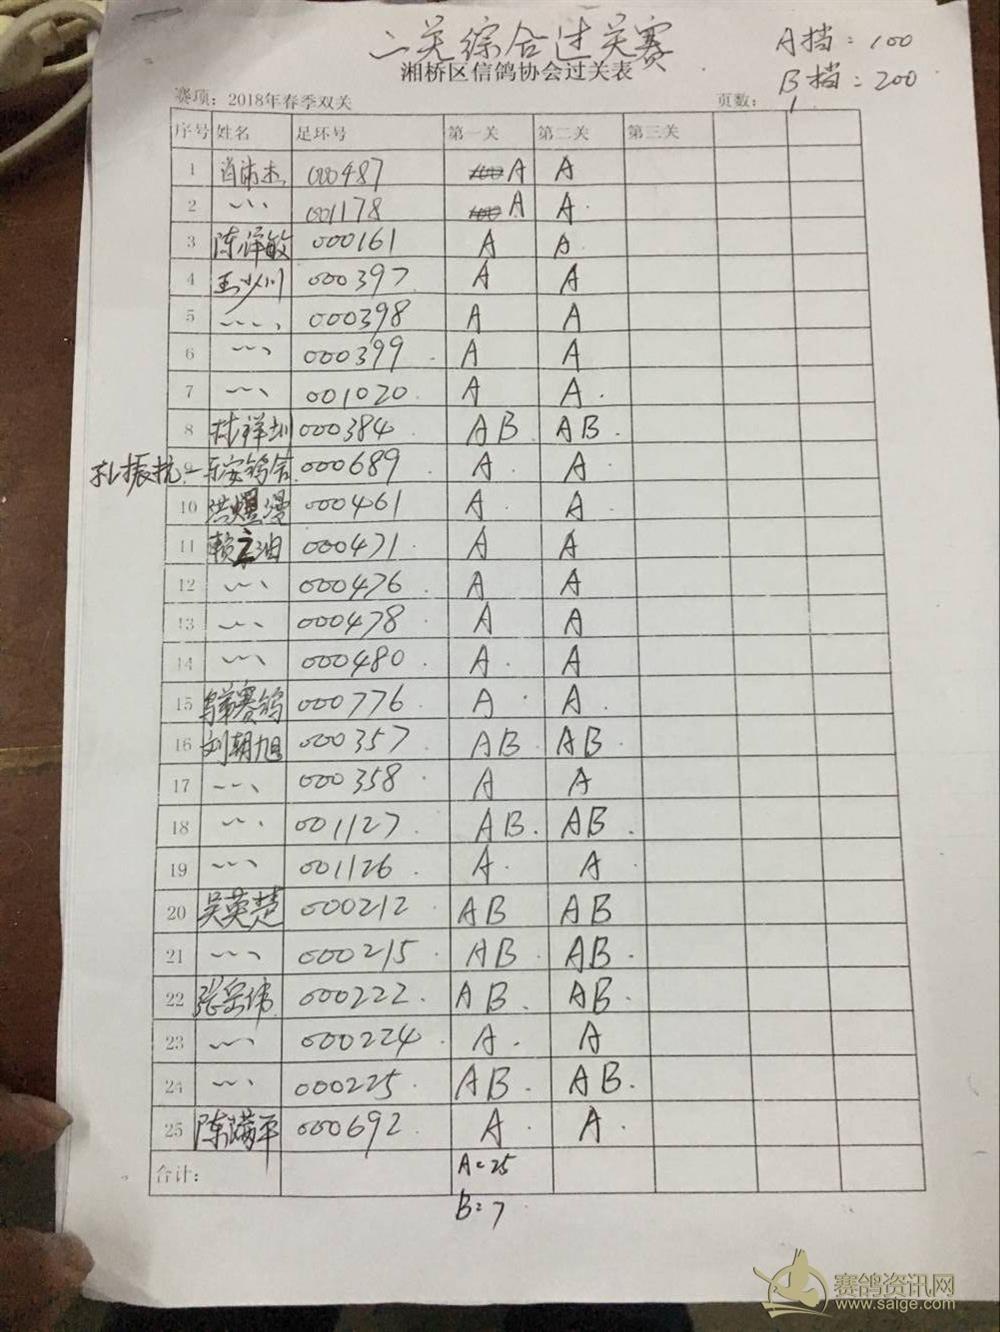 二关综合过关赛
A挡：100
湘桥区信鸽协会过关表
B挡：200
赛项：2018年春季双关 页数：1
序号 姓名 足环号 第一关 第二关 第三关
1 000487 A A
2 001178 A A
3 000161 A A
4 王少川 000397 A A
5 000398 A A
6 000399 A A
7 001020 A A
8 000384 AB AB
孔振抗 9 000689 A A
10 000461 A A
11 000471 A A
12 000476 A A
13 000478 A A
14 000480 A A
15 赛鸽 000776 A A
16 刘朝旭 000357 AB AB
17 000358 A A
18 001127 AB AB
19 001126 A A
20 吴英楚 000212 AB AB
21 000215 AB AB
22 000222 AB AB
23 000224 A A
24 000225 AB AB
25 000692 A A
合计： A=25
B=7
赛鸽资讯网
www.saige.com